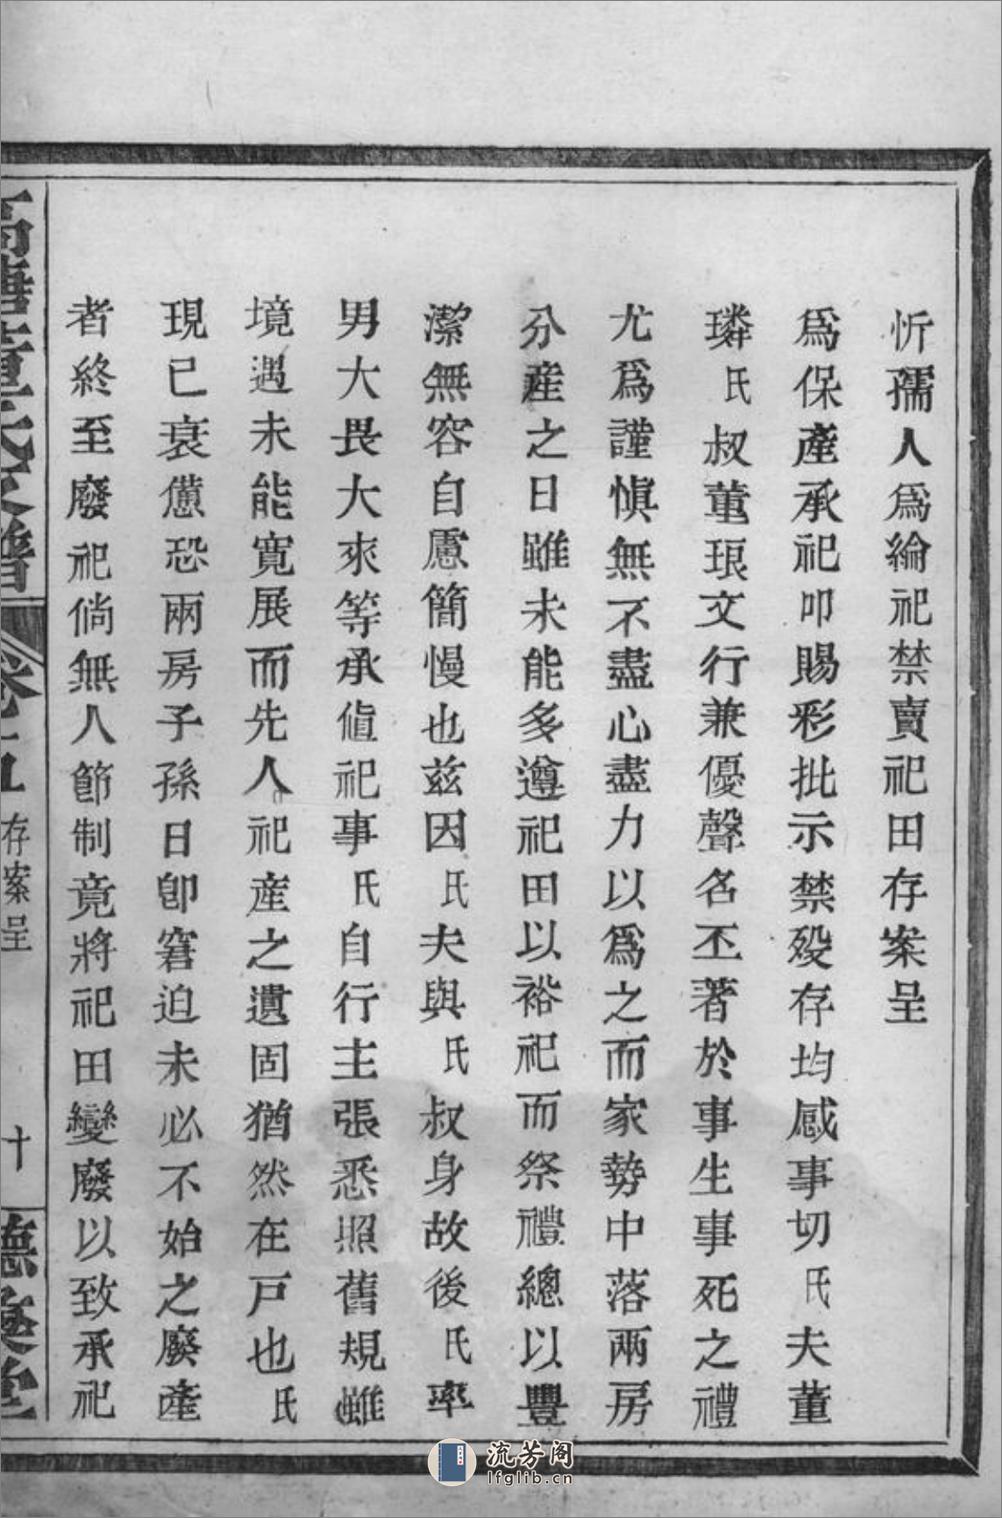 忻孺人爲綸祀禁賣祀田存案呈
爲保產承祀叩賜彩批示禁殁存均感事切氏夫董
璘氏叔董琅文行兼優聲名丕著於事生事死之禮
尤爲謹愼無不盡心盡力以爲之而家勢中落兩房
分產之日雖未能多遵祀田以裕祀而祭禮總以豐
潔無容自處簡慢也茲因氏夫與氏叔身故後氏率
男大畏大來等承値祀事氏自行主張悉照舊規雖
境遇未能寬展而先人祀產之遺固猶然在戸也氏
現已衰憊恐兩房子孫日卽窘迫未必不始之廢產
者終至廢祀倘無人節制竟將祀田變廢以致承祀
董氏家譜
卷十五
存案呈
十
流芳阁
lfglib.cn